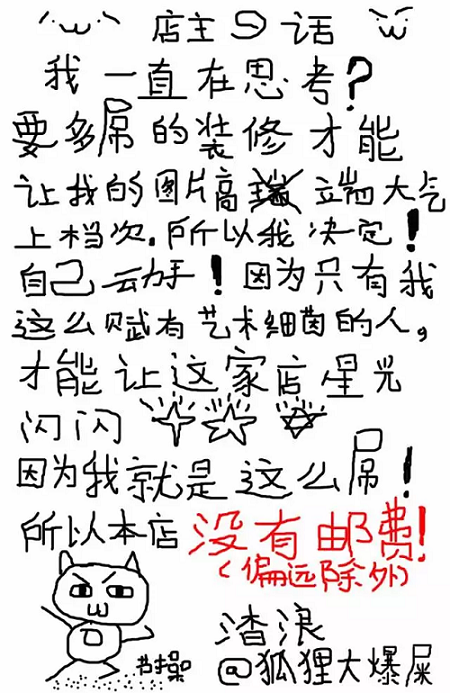 店主の话
我一直在思考?
要多屌的装修才能
让我的图片高端大气
上档次。所以我决定!
自己动手!因为只有我
这么赋有艺术细菌的人,
才能让这家店星光
闪闪
因为我就是这么屌!
所以本店没有邮费!
(偏远除外)
节操
渣浪
@狐狸大爆屎